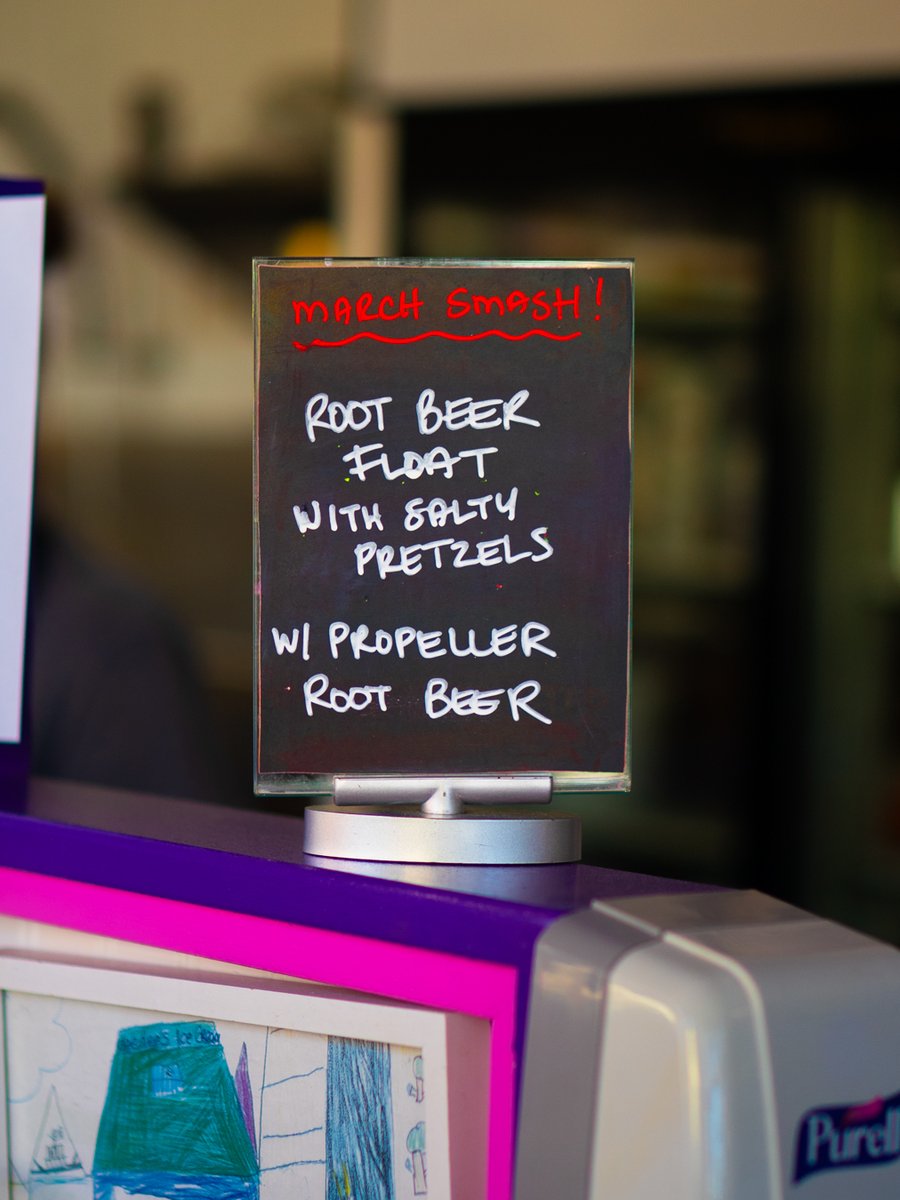 MARCH SMASH!
ROOT BEER
FLOAT
WITH SALTY
PRETZELS
W/ PROPELLER
ROOT BEER
Purell